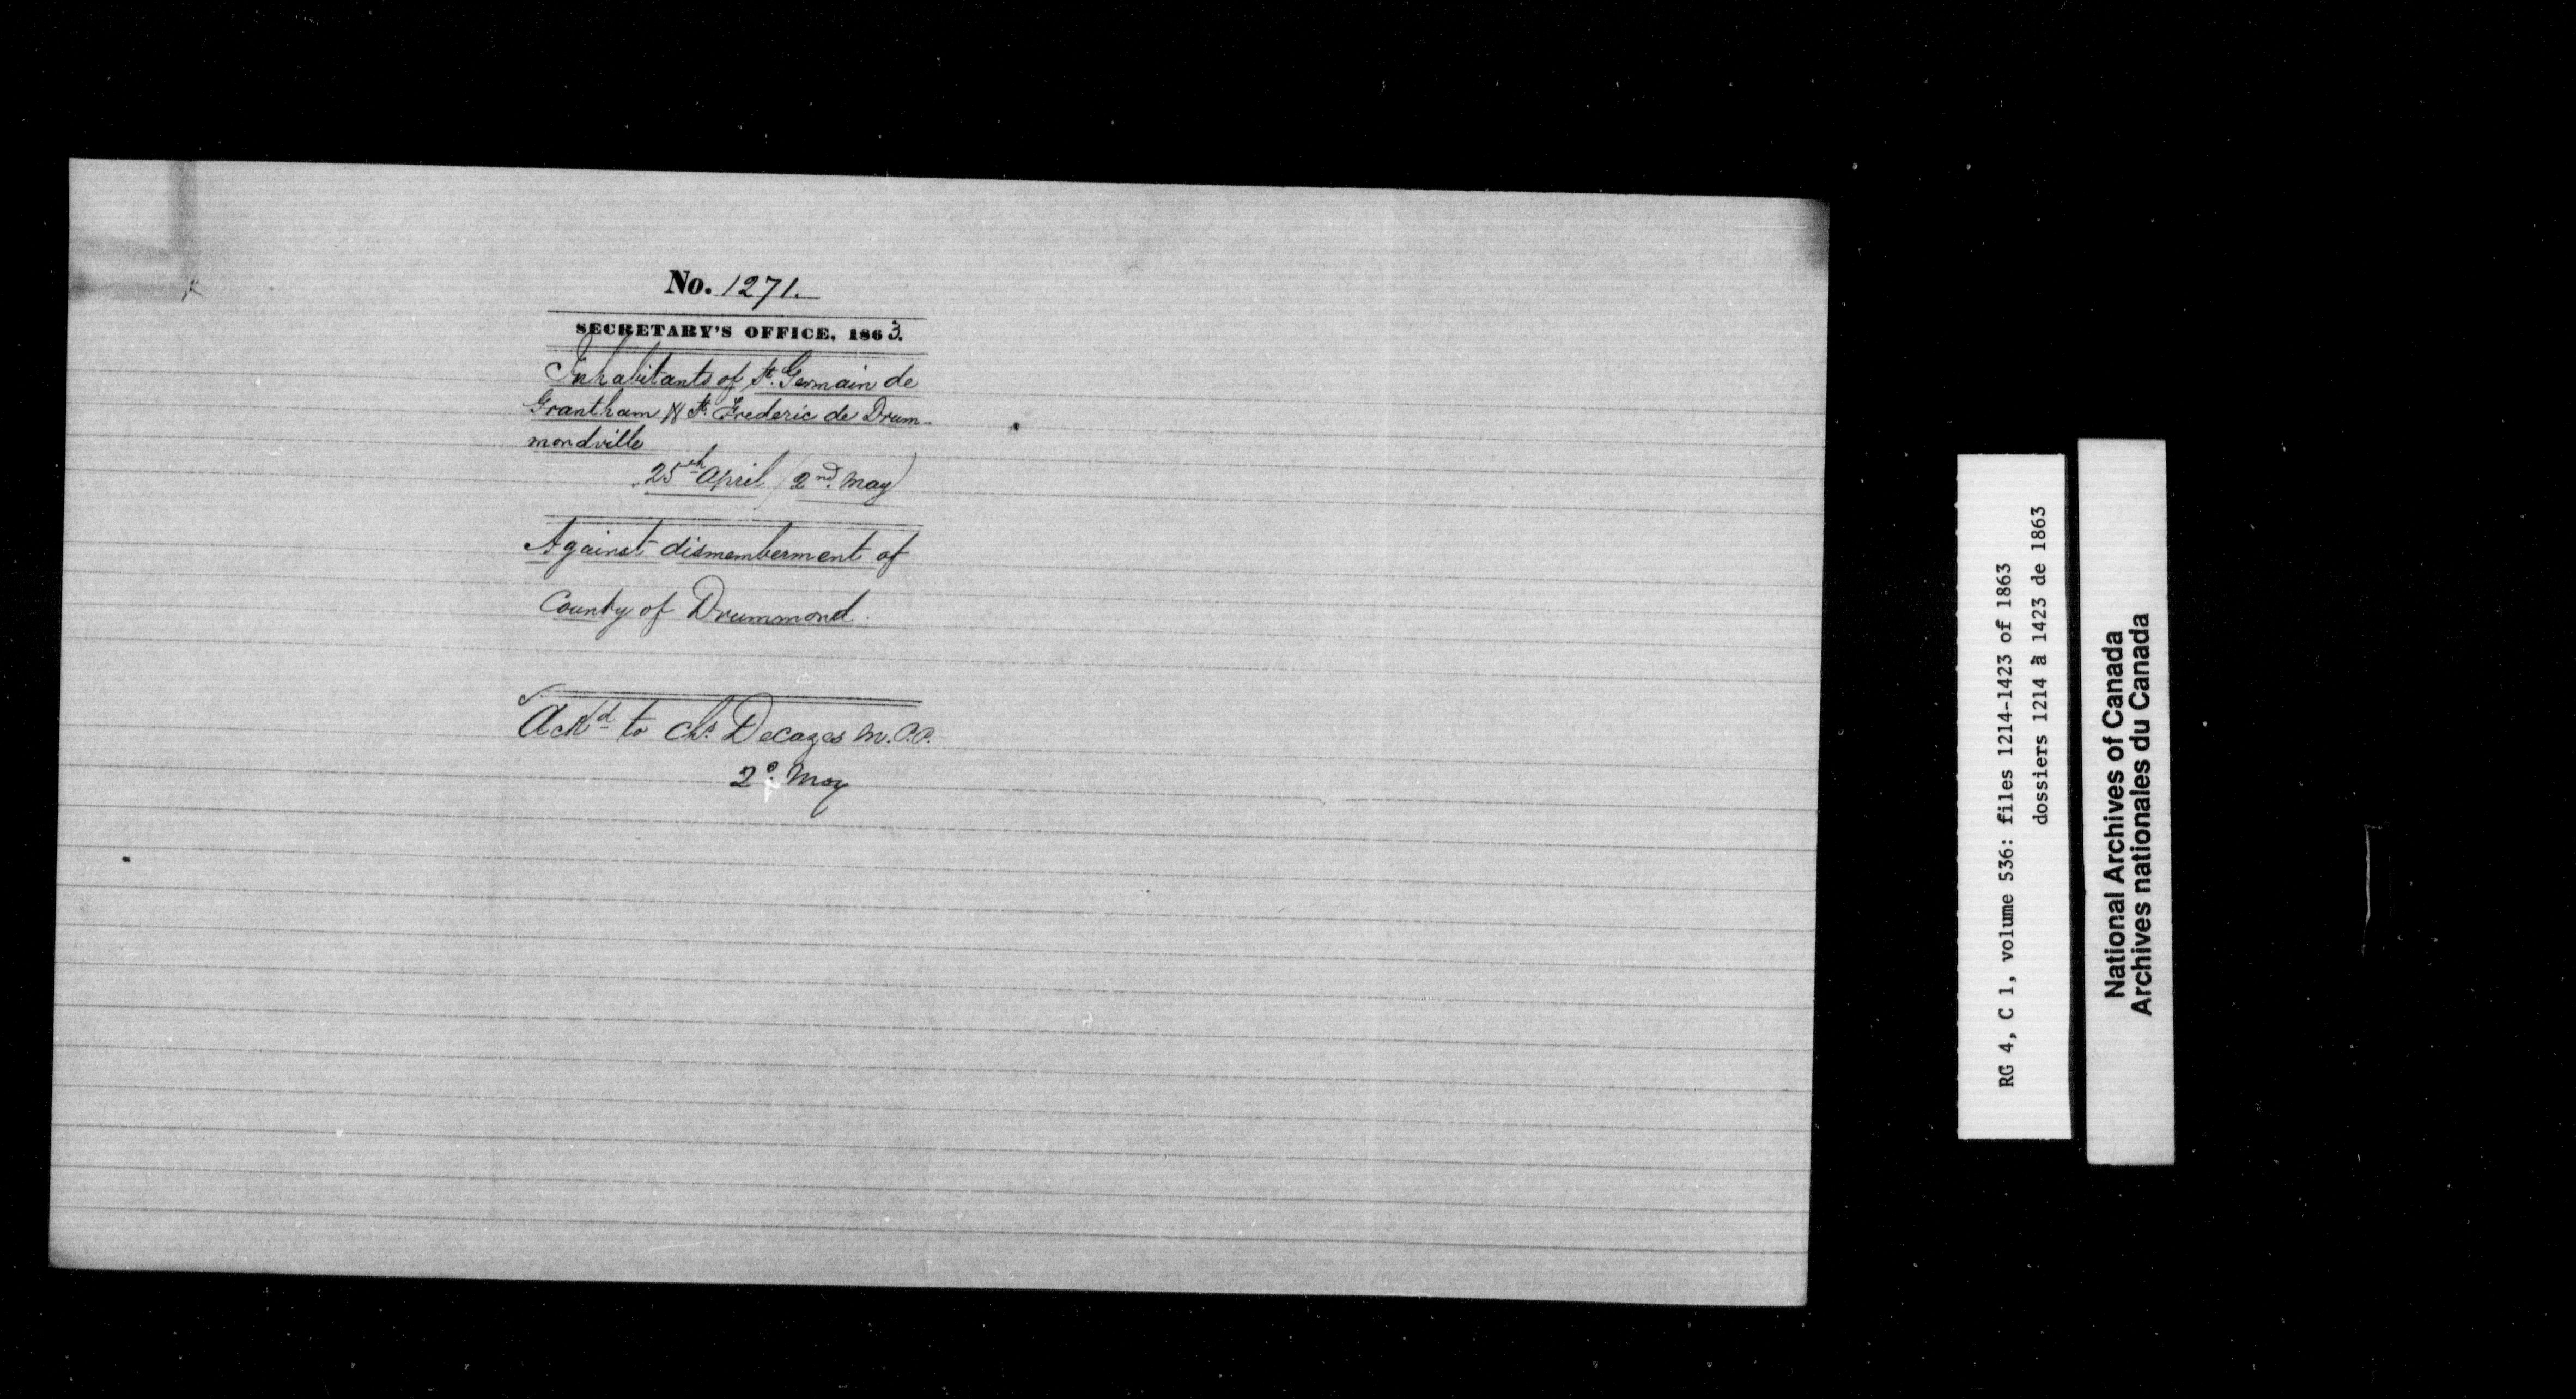 No. 1271.
SECRETARY'S OFFICE, 1863.
Inhabitants of St. Germain de
Grantham & St. Frederic de Drum-
mondville
25th April (2nd May)
Against dismemberment of
County of Drummond.
Ackd to Chs. Decazes M.P.P.
2d. May
RG 4, C 1, volume 536: files 1214-1423 of 1863
dossiers 1214 à 1423 de 1863
National Archives of Canada
Archives nationales du Canada